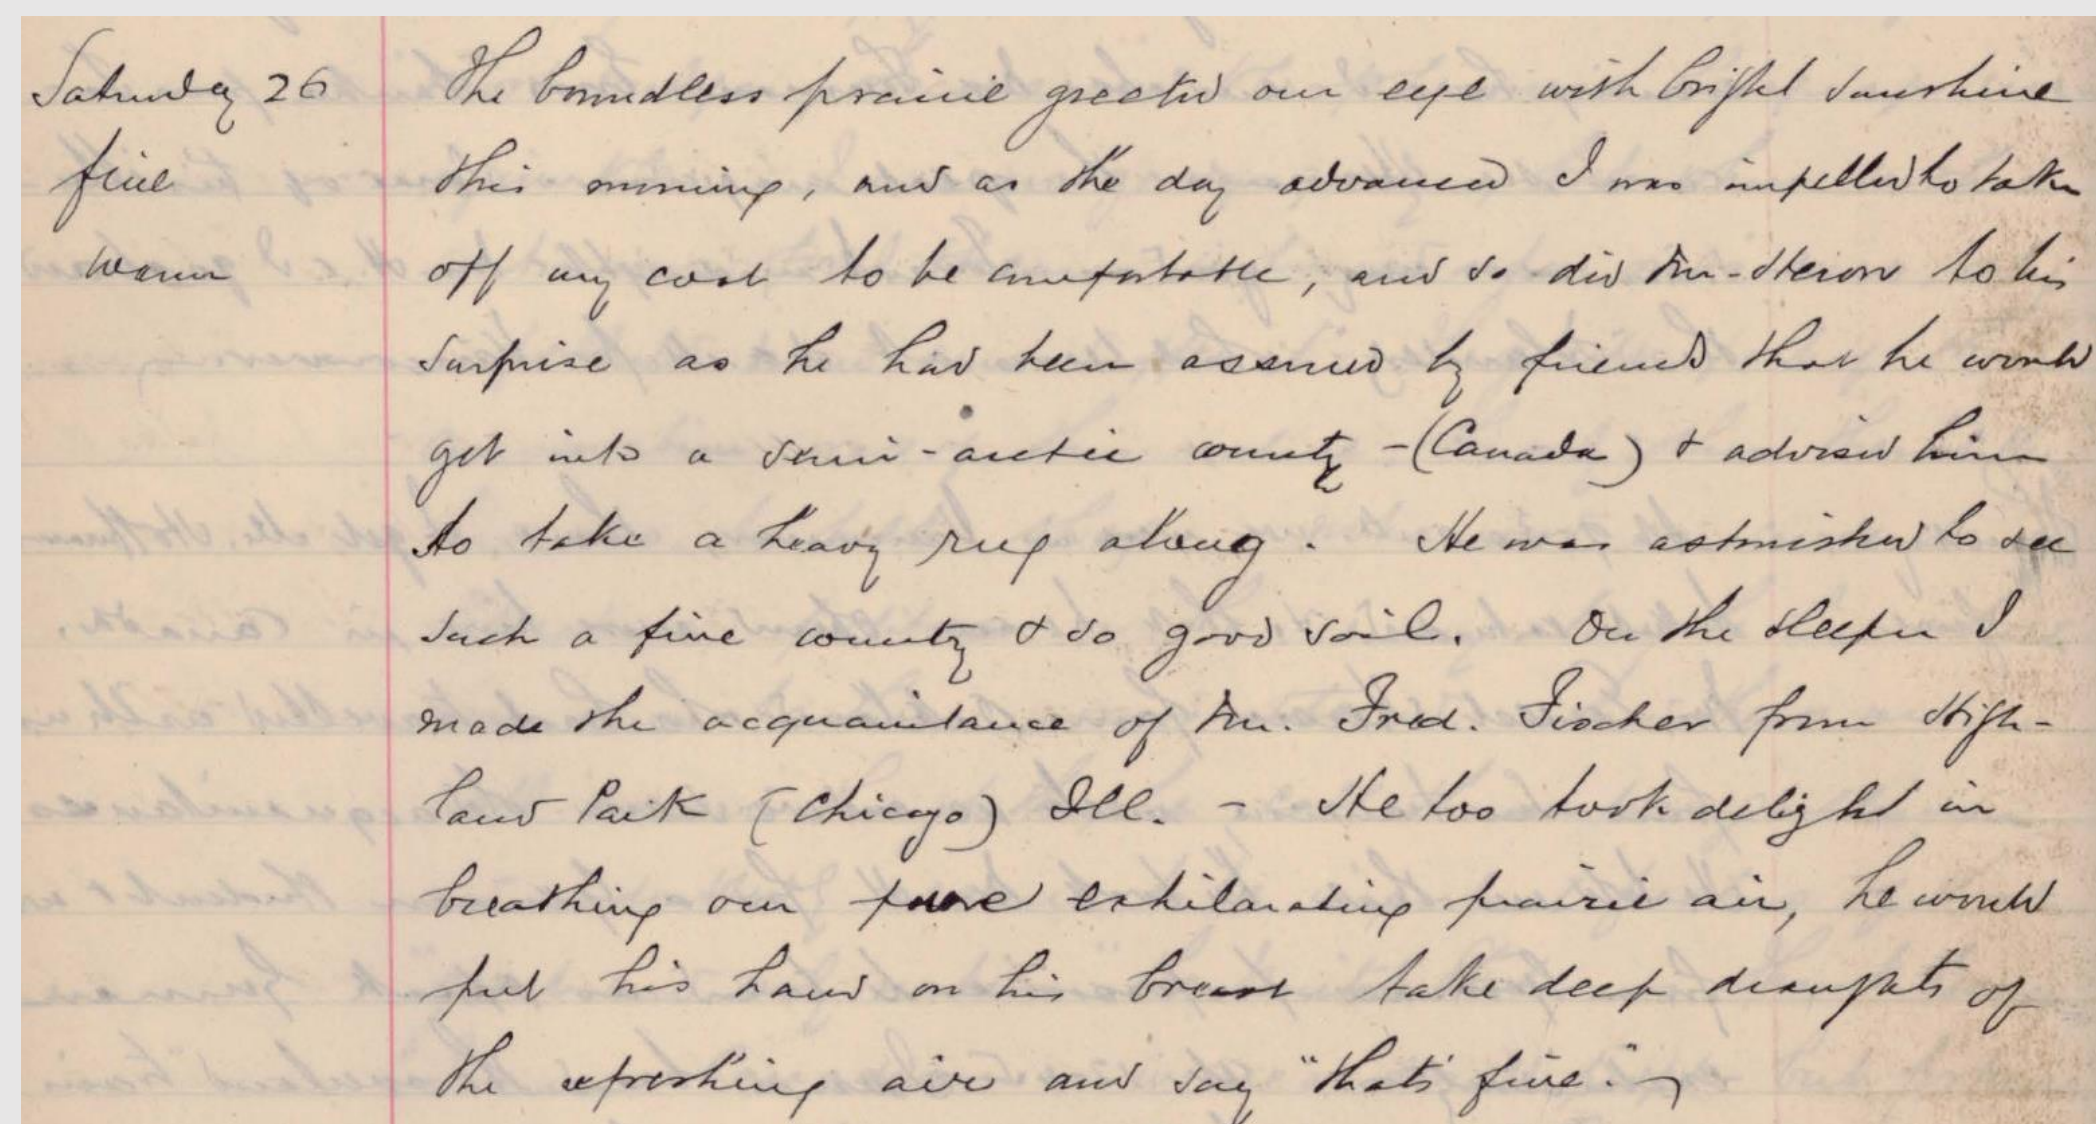 Saturday 26 The boundless prairie greeted our eye with bright sunshine
fine this morning, and as the day advanced I was impelled to take
warm off my coat to be comfortable, and so did Mr. Heron to his
surprise as he had been assured by friends that he would
get into a semi-arctic country - (Canada) & advised him
to take a heavy rug along. He was astonished to see
such a fine country & so good soil. On the sleeper I
made the acquaintance of Mr. Fred. Fischer from High-
land Park (Chicago) Ill. - He too took delight in
breathing our pure exhilarating prairie air, he would
put his hand on his breast take deep draughts of
the refreshing air and say "that's fine."